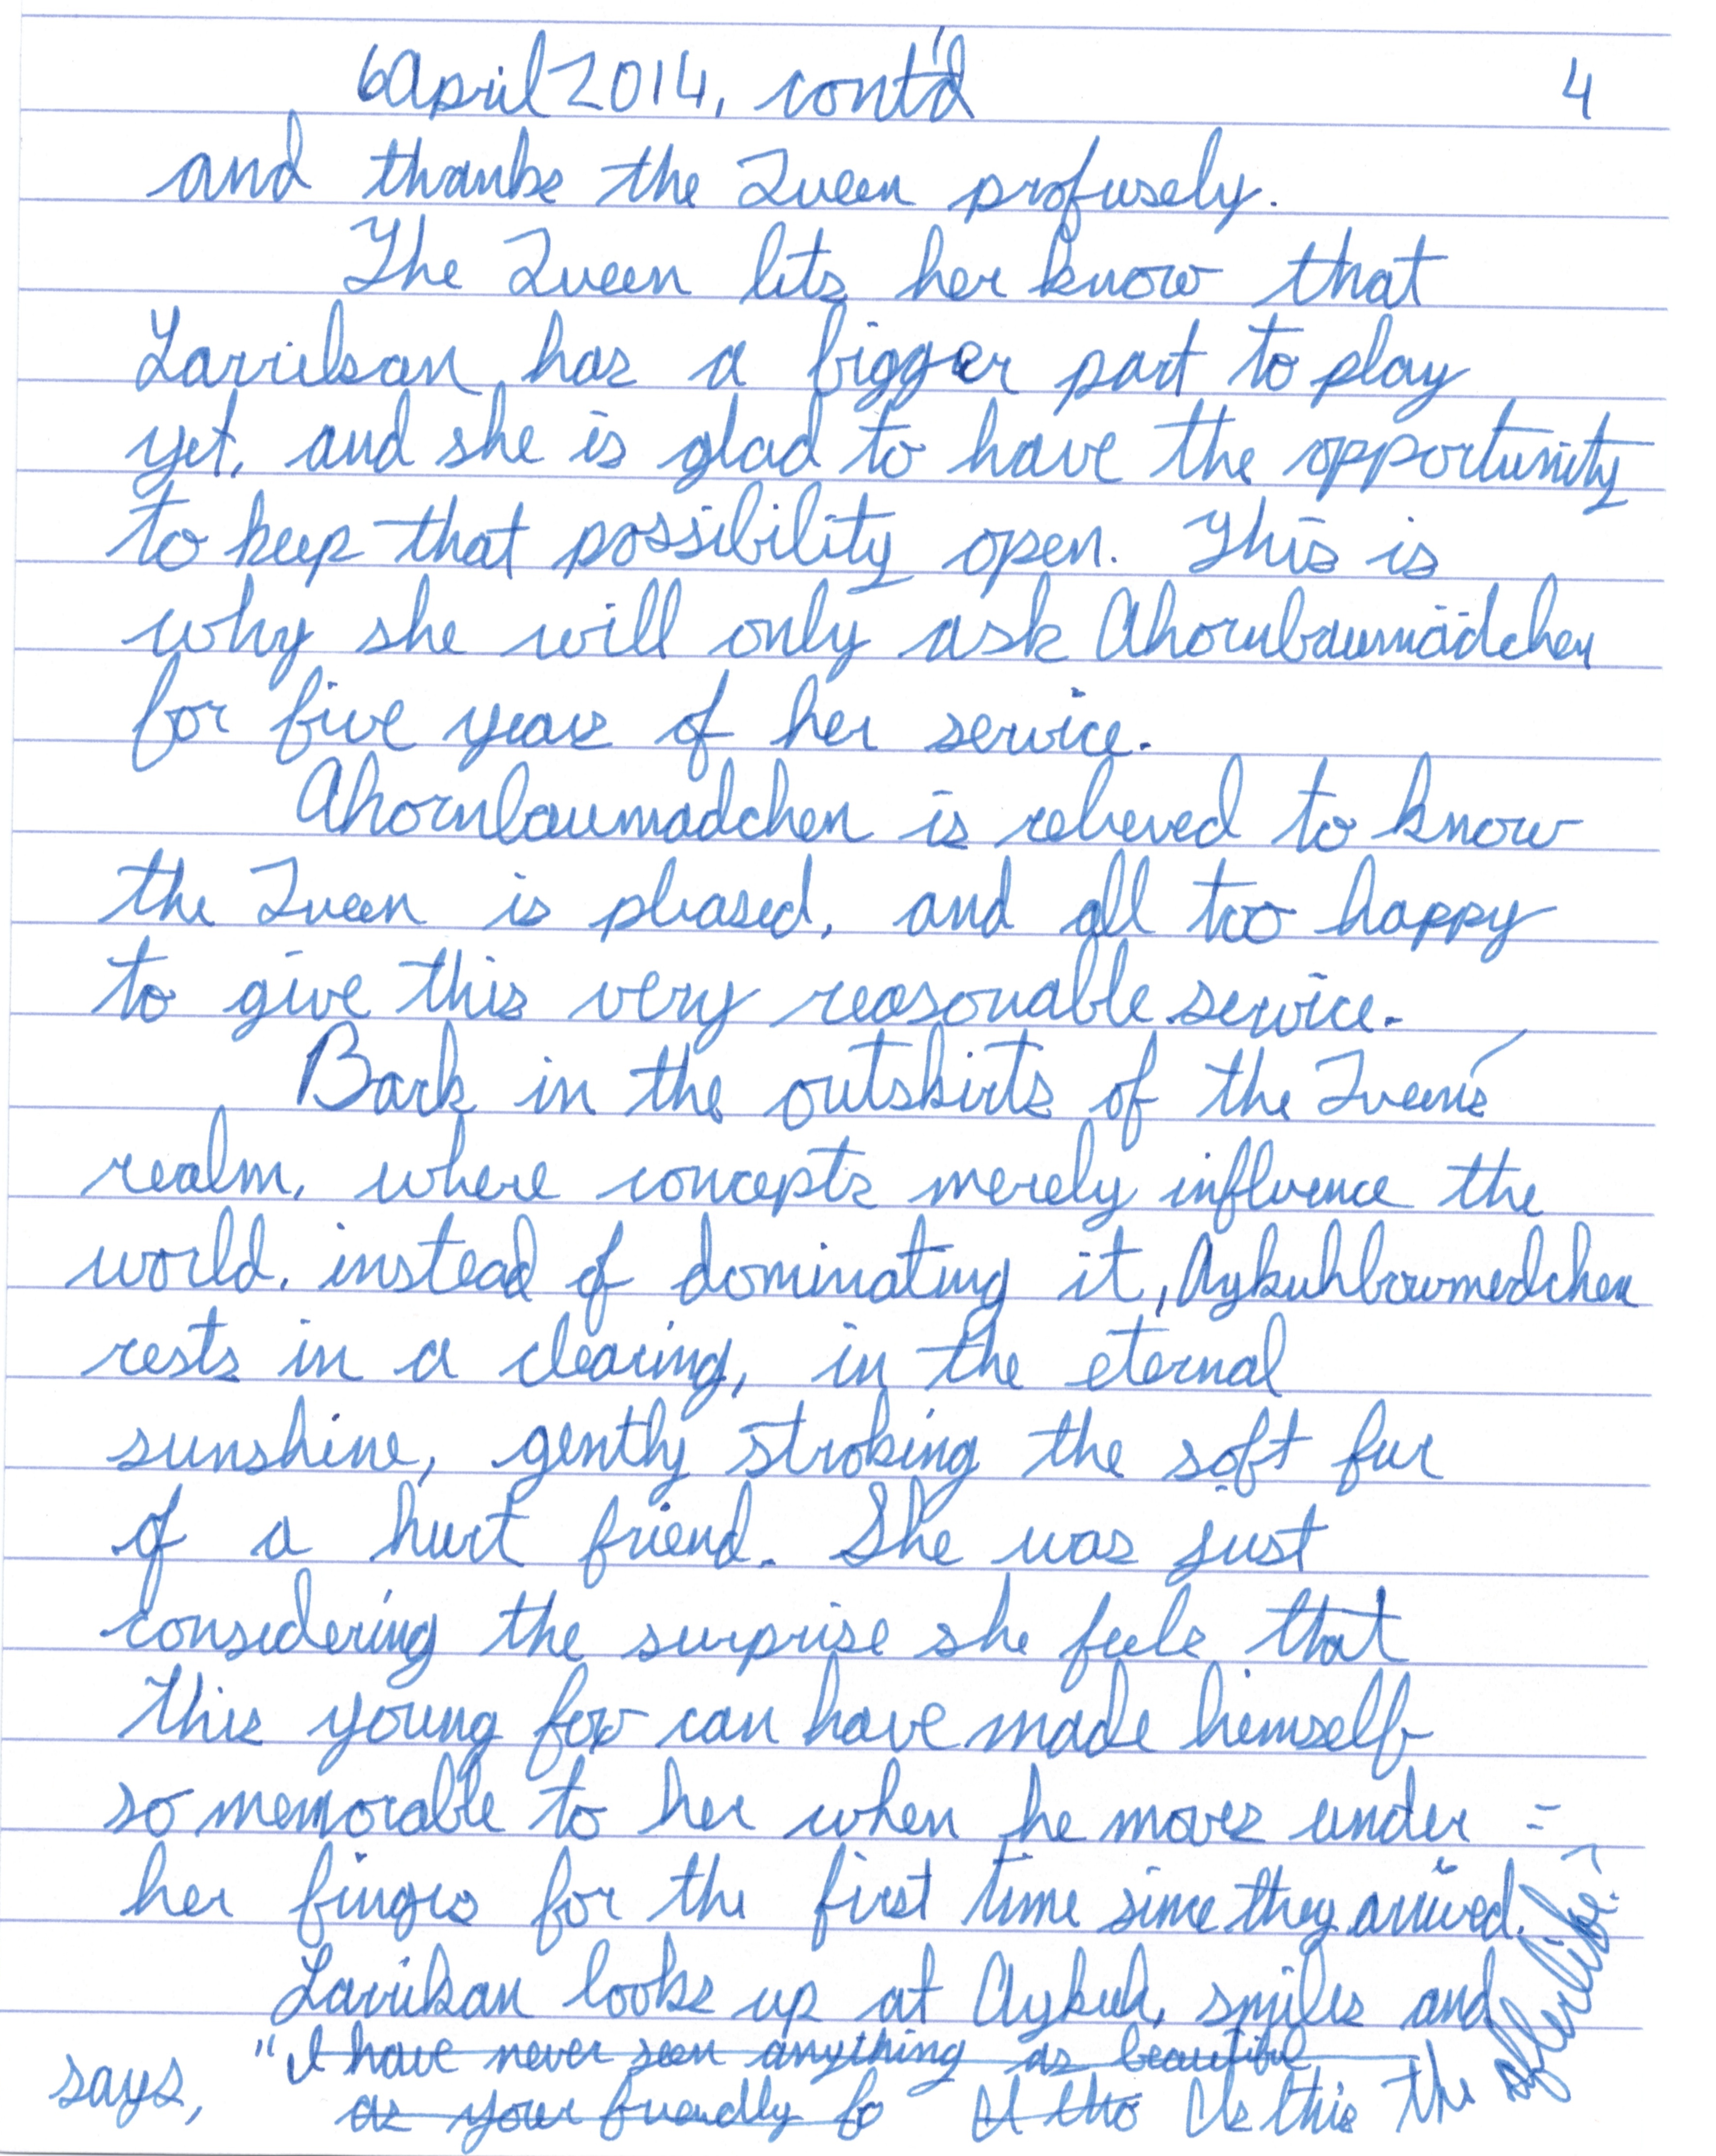 6 April 2014, cont'd 4
and thanks the Queen profusely.
The Queen lets her know that
Larrikan has a bigger part to play
yet, and she is glad to have the opportunity
to keep that possibility open. This is
why she will only ask Ahornbaumädchen
for five years of her service.
Ahornbaumadchen is relieved to know
the Queen is pleased, and all too happy
to give this very reasonable service.
Back in the outskirts of the Queen's
realm, where concepts merely influence the
world, instead of dominating it, Aykuhbowmedchen
rests in a clearing, in the eternal
sunshine, gently stroking the soft fur
of a hurt friend. She was just
considering the surprise she feels that
this young fox can have made himself
so memorable to her when he moves under =
her fingers for the first time since they arrived.
Larrikan looks up at Aykuh, smiles and
"I have never seen anything as beautiful
says, as your friendly fo I tho Is this the afterlife?"